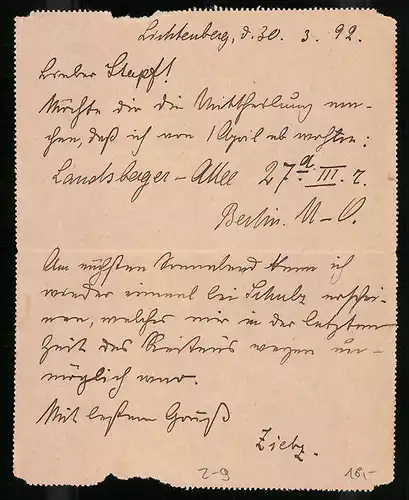 Lichtenberg, d. 30. 3. 92.
Lieber Stapf!
Möchte dir die Mittheilung ma-
chen, daß ich von 1 April ab wohne:
Landsberger-Allee 27a. III. r.
Berlin. N-O.
Am nächsten Sonnabend kann ich
wieder einmal bei Schulz erschei-
nen, welches mir in der letzten
Zeit des Reisens wegen un-
möglich war.
Mit bestem Gruß
2-9 16,-